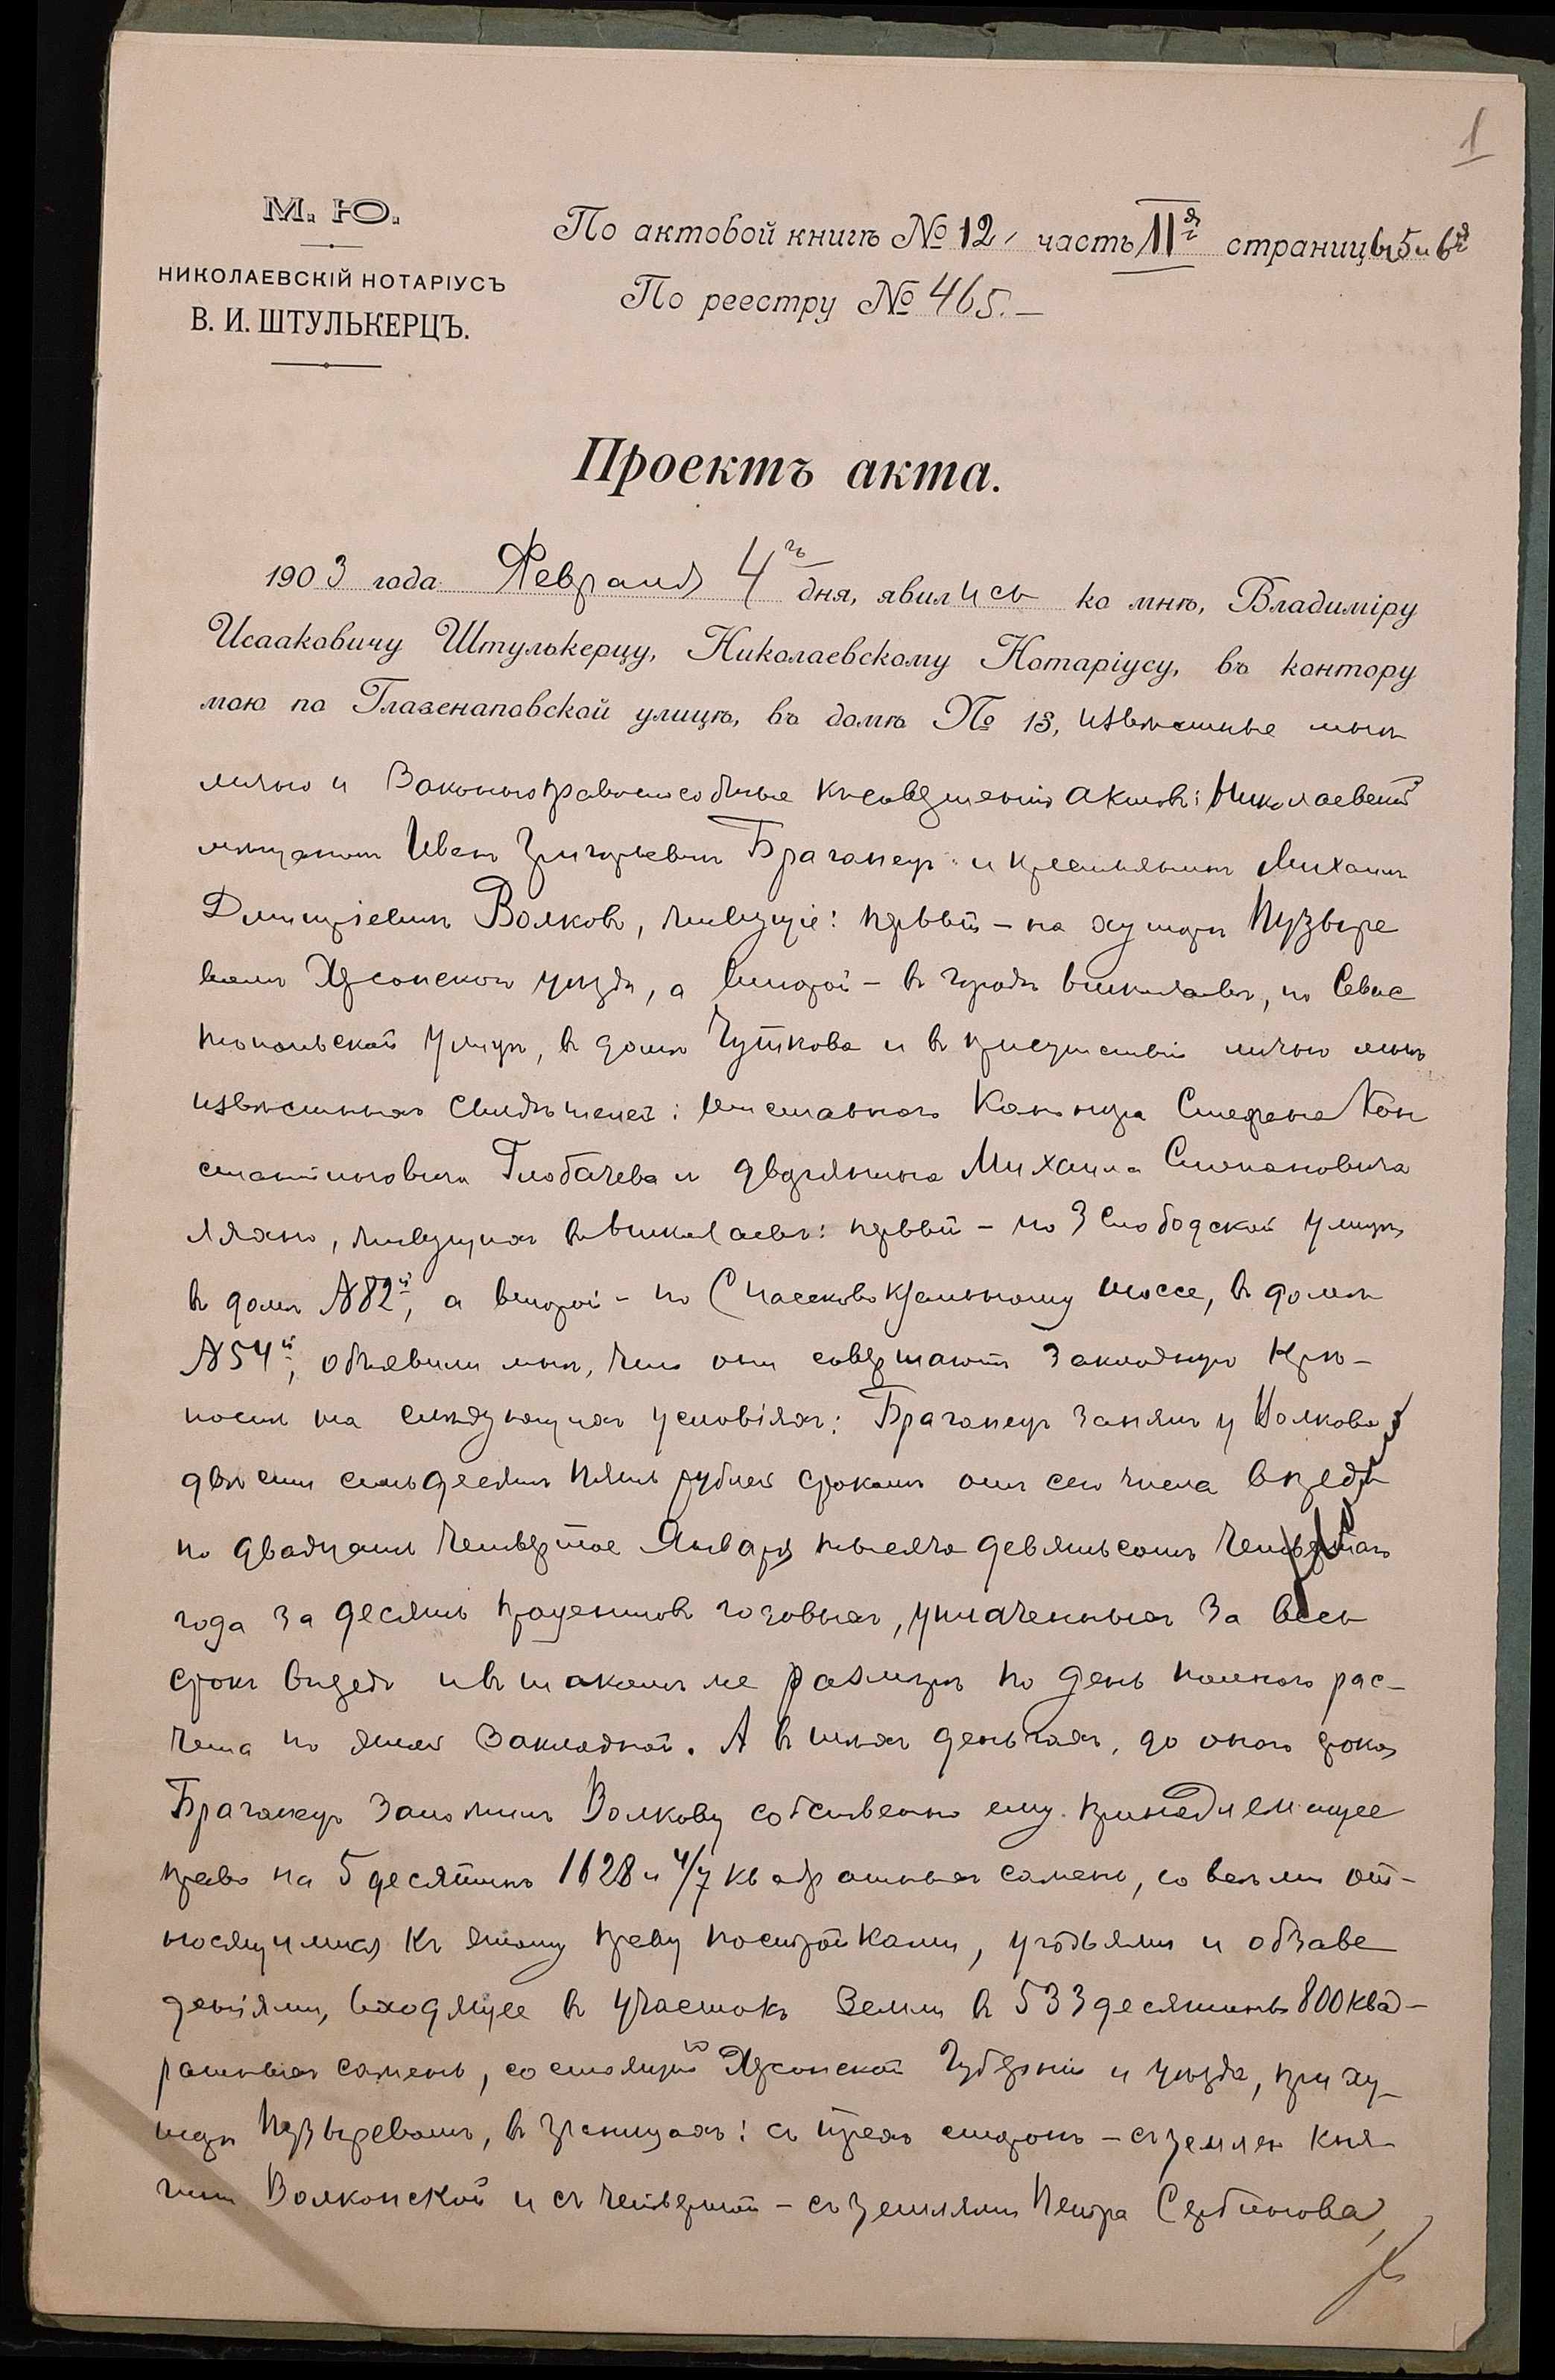 1
М. Ю.
НИКОЛАЕВСКІЙ НОТАРІУСЪ
В. И. ШТУЛЬКЕРЦЪ.
По актовой книгѣ № 12, часть II я страницы 5 и 6 я
По реестру № 465.—
Проектъ акта.
1903 года Февраля 4 го дня, явились ко мнѣ, Владиміру
Исааковичу Штулькерцу, Николаевскому Нотаріусу, въ контору
мою по Глазенаповской улицѣ, въ домѣ № 13, извѣстные мнѣ
лично и законноправоспособные къ совершенію актовъ: Николаевскій
мѣщанинъ Иванъ Григорьевичъ Браганецъ и крестьянинъ Михаилъ
Дмитріевичъ Волковъ, живущіе: первый – на хуторѣ Пузыре
вомъ Херсонскаго уѣзда, а второй – въ городѣ Николаевѣ, по Севас
топольской улицѣ, въ домѣ Чуйкова и въ присутствіи лично мнѣ
извѣстныхъ свидѣтелей: отставного Стефана Кон
стантиновича Глобачева и дворянина Михаила Степановича
Ляхно, живущихъ въ Николаевѣ: первый – по 3 Слободской улицѣ
въ домѣ № 82 й, а второй – по шоссе, въ домѣ
№ 54 й, объявили мнѣ, что они совершаютъ закладную крѣ-
пость на слѣдующихъ условіяхъ: Браганецъ занялъ у Волкова
двѣсти семьдесятъ пять рублей срокомъ отъ сего числа впредь
по двадцать четвертое Января тысяча девятьсотъ четвертаго
года за десять процентовъ годовыхъ, уплаченныхъ за весь
срокъ впередъ и въ такомъ же размѣрѣ по день полнаго рас-
чета по этой закладной. А въ тѣхъ деньгахъ, до онаго срока
Браганецъ заложилъ Волкову собственно ему принадлежащее
право на 5 десятинъ 1628 и 4/7 квадратныхъ сажень, со всѣми от-
носящимися къ этому праву постройками, угодьями и обзаве
деніями, входящее въ участокъ земли въ 533 десятины 800 квад-
ратныхъ сажень, состоящій Херсонской Губерніи и уѣзда, при ху-
торѣ Пузыревомъ, въ границахъ: съ трехъ сторонъ – съ землею Кня-
гини Волконской и съ четвертой – съ землями Петра Сербинова,